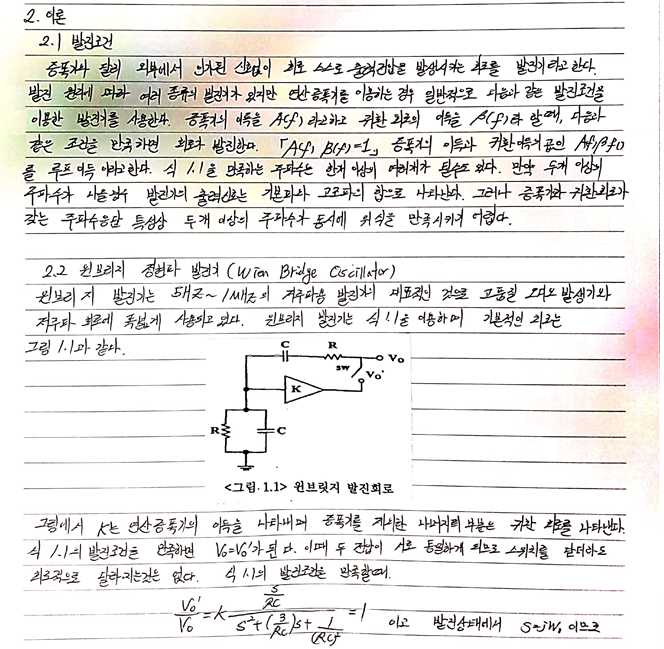 2. 이론
2.1 발진조건
증폭기와 달리 외부에서 인가된 신호없이 회로 스스로 출력전압을 발생시키는 회로를 발진기라고 한다.
발진 원리에 따라 여러 종류의 발진기가 있지만 연산증폭기를 이용하는 경우 일반적으로 다음과 같은 발진조건을
이용한 발진기를 사용한다. 증폭기의 이득을 A(f)라고하고 귀환 회로의 이득을 β(f)라 할때, 다음과
같은 조건을 만족하면 회로가 발진한다. 「A(f) β(f)=1」 증폭기의 이득과 귀환이득의 곱인 A(f)β(f)
를 루프이득 이라고한다. 식 1.1을 만족하는 주파수는 한개 이상 여러개가 될수도 있다. 만약 두개 이상의
주파수가 나올경우 발진기의 출력신호는 기본파와 고조파의 합으로 나타난다. 그러나 증폭기와 귀환회로가
갖는 주파수응답 특성상 두개 이상의 주파수가 동시에 위식을 만족시키기 어렵다.
2.2 윈브리지 정현파 발진기 (Wien Bridge Oscillator)
윈브리지 발진기는 5HZ ~ 1MHZ의 저주파용 발진기의 대표적인 것으로 고품질 오디오 발생기와
저주파 회로에 폭넓게 사용되고 있다. 윈브리지 발진기는 식 1.1을 이용하며 기본적인 회로는
그림 1.1과 같다.
C R
Vo
SW
Vo'
K
R C
<그림.1.1> 윈브릿지 발진회로
그림에서 K는 연산증폭기의 이득을 나타내며 증폭기를 제외한 나머지 부분은 귀환 회로를 나타낸다.
식 1.1의 발진조건을 만족하면 Vo=Vo'가 된다. 이때 두 전압이 서로 동일하게 되므로 스위치를 닫더라도
회로적으로 달라지는것은 없다. 식 1.1의 발진조건을 만족할때.
Vo'/Vo = K (s/RC)/(s²+(3/RC)s+1/(RC)²) = 1 이고 발진상태에서 s=jw₀ 이므로